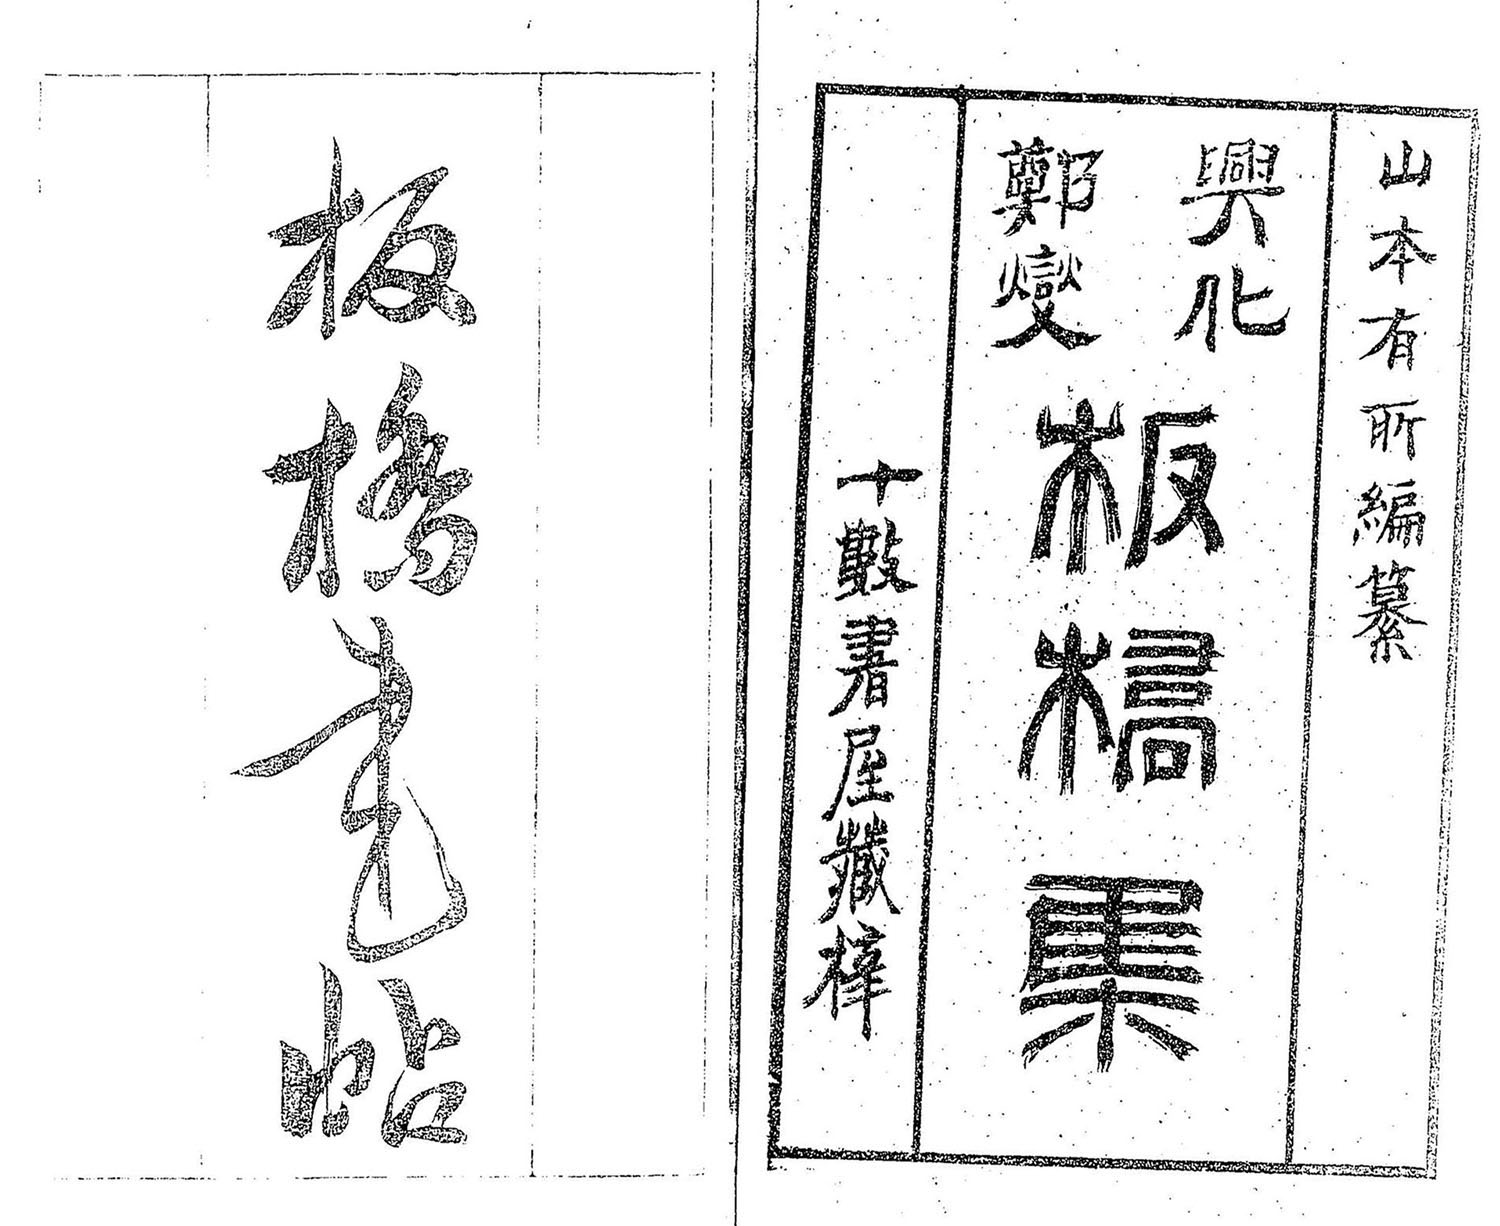 山本有所編纂
興化
鄭燮
板橋集
十書屋藏梓
板橋書帖